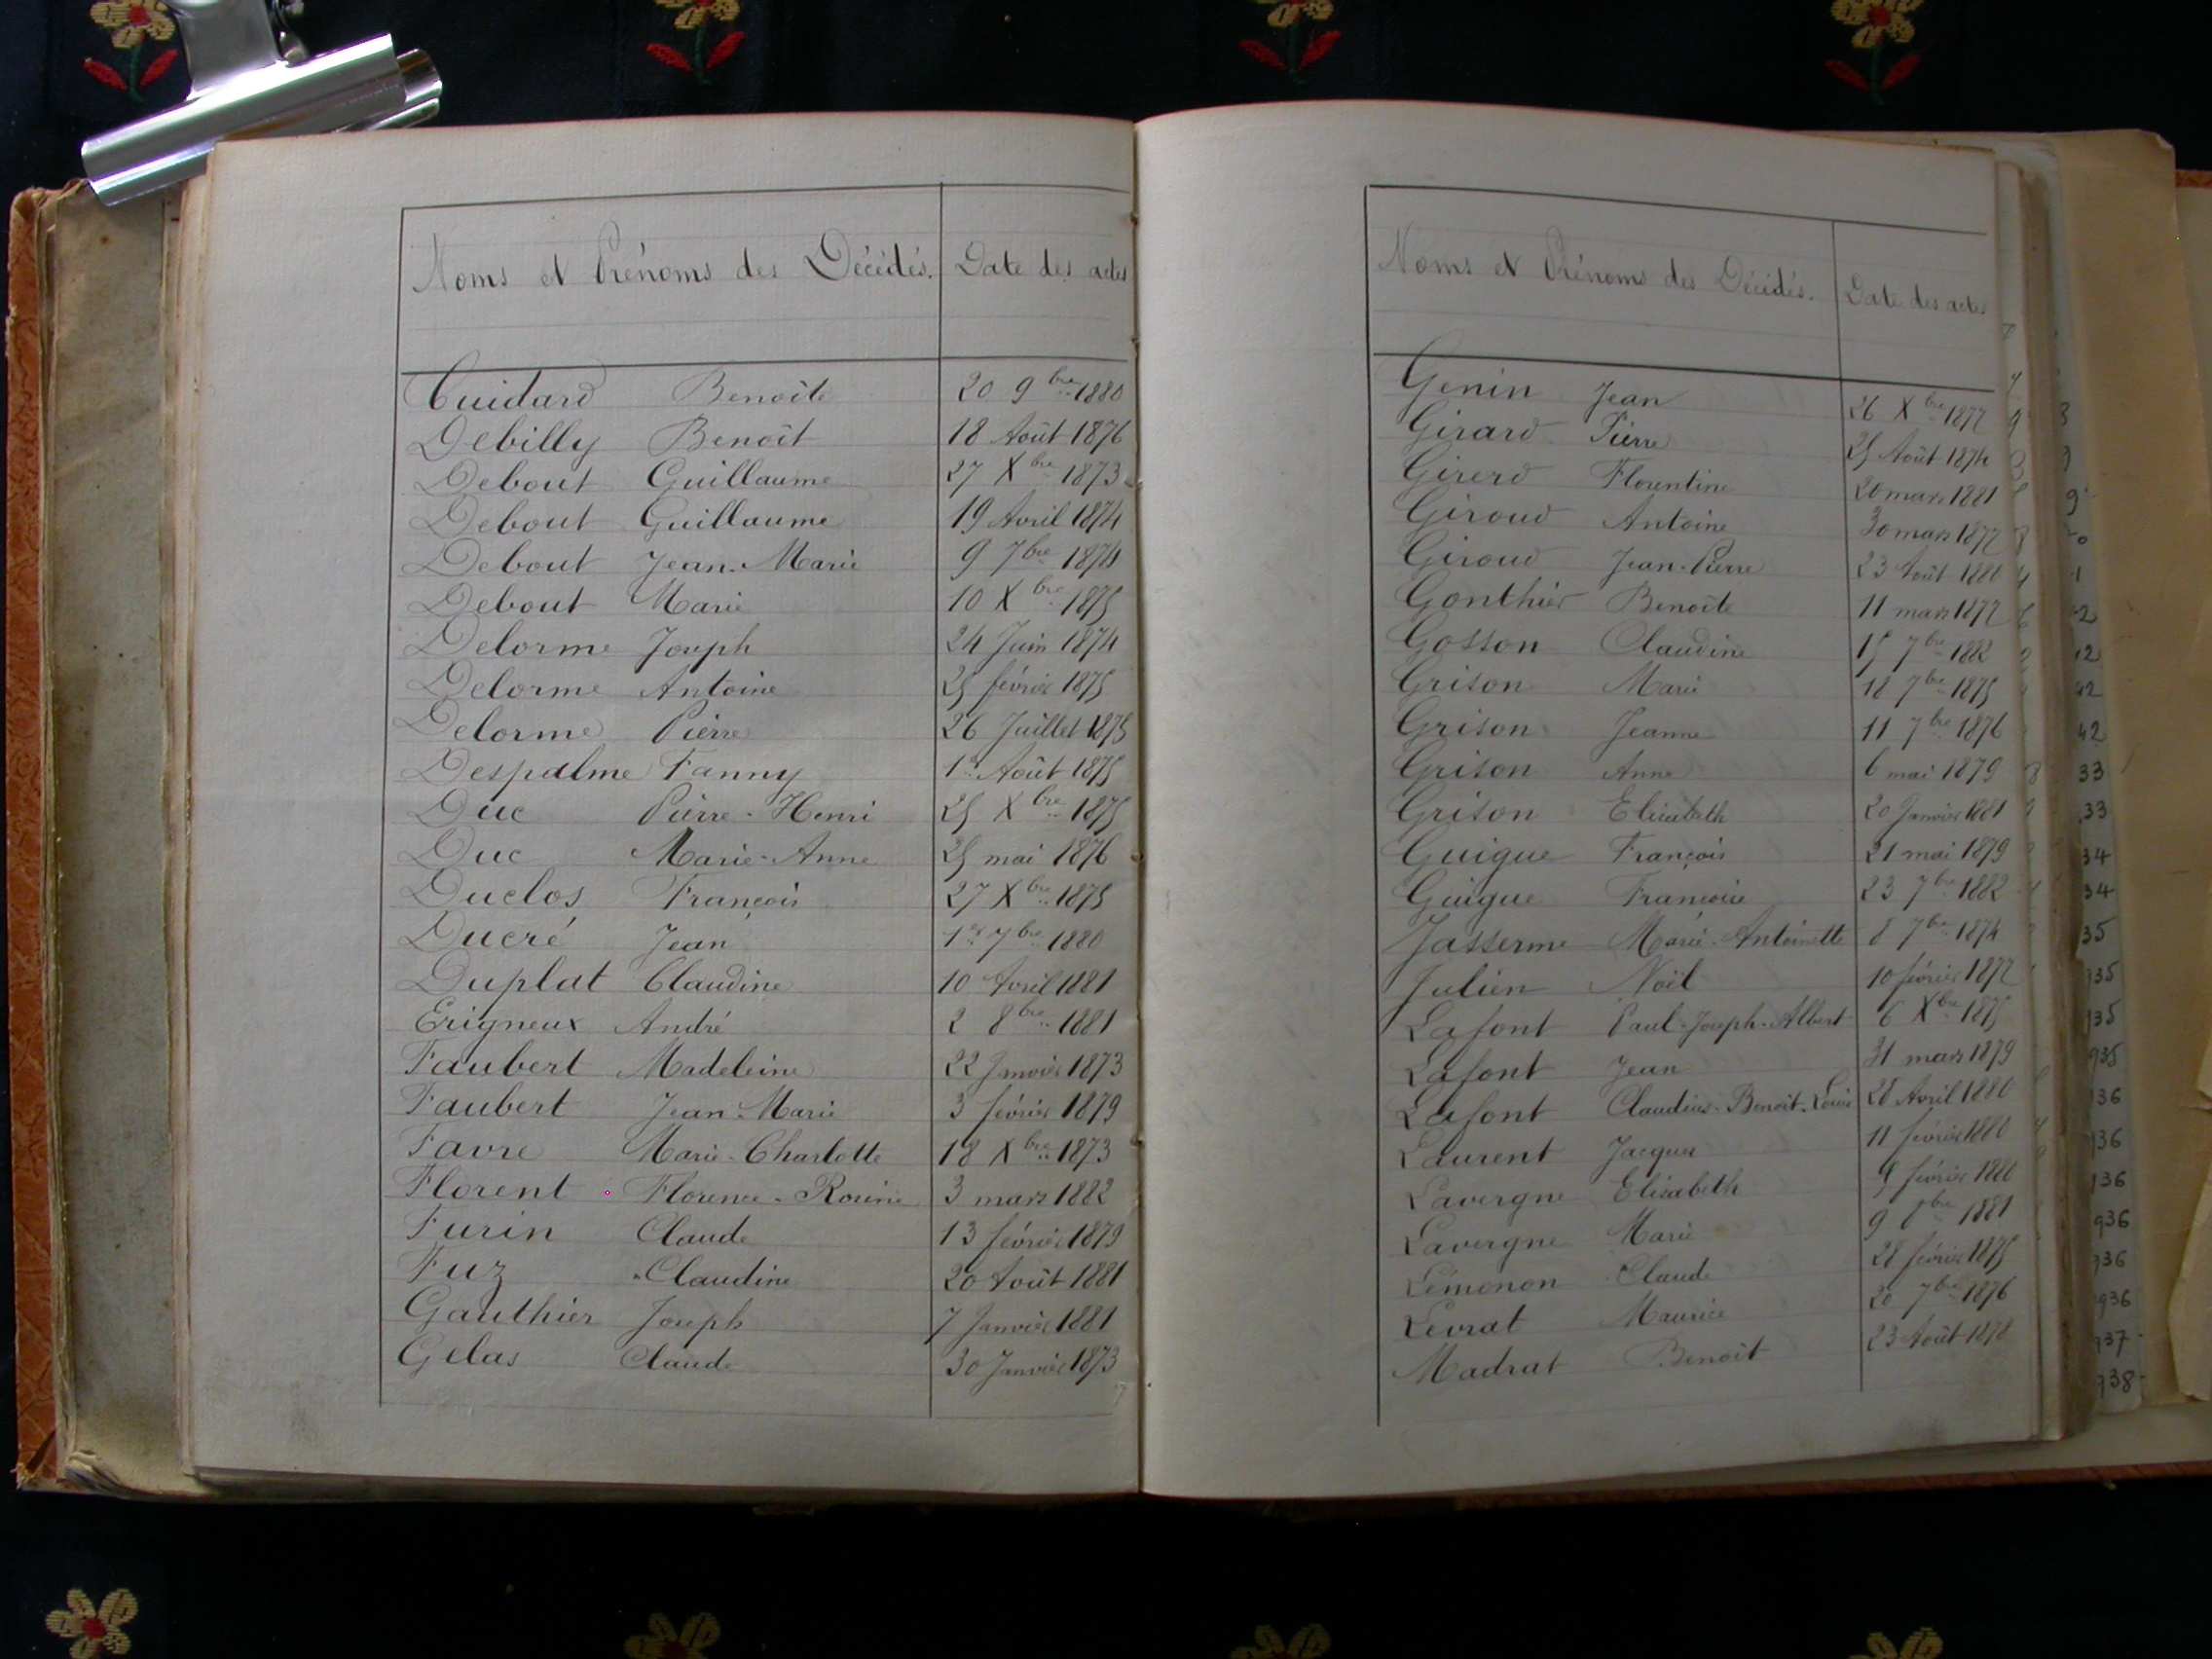 Noms et Prénoms des Décédés. Date des actes
Cuidard Benoîte 20 9bre 1880
Debilly Benoît 18 Août 1876
Debout Guillaume 27 Xbre 1873
Debout Guillaume 19 Avril 1874
Debout Jean-Marie 9 7bre 1874
Debout Marie 10 Xbre 1875
Delorme Joseph 24 Juin 1874
Delorme Antoine 25 février 1875
Delorme Pierre 26 Juillet 1875
Despalme Fanny 1er Août 1875
Duc Pierre-Henri 25 Xbre 1875
Duc Marie-Anne 25 mai 1876
Duclos François 27 Xbre 1875
Ducré Jean 1er 7bre 1880
Duplat Claudine 10 Avril 1881
Erigneux André 2 8bre 1881
Faubert Madeleine 22 Janvier 1873
Faubert Jean-Marie 3 février 1879
Favre Marie-Charlotte 18 Xbre 1873
Florent Florence-Rosine 3 mars 1882
Furin Claude 13 février 1879
Fuz Claudine 20 Août 1881
Gauthier Joseph 7 Janvier 1881
Gelas Claude 30 Janvier 1873
Noms et Prénoms des Décédés. Date des actes
Genin Jean 26 Xbre 1877
Girard Pierre 25 Août 1874
Girerd Florentine 20 mars 1881
Giroud Antoine 30 mars 1877
Giroud Jean-Pierre 23 Août
Gonthier Benoîte 11 mars 1877
Gosson Claudine 15 7bre 1882
Grison Marie 18 7bre 1875
Grison Jeanne 11 7bre 1876
Grison Anne 6 mai 1879
Grison Elisabeth 20 Janvier 1881
Guigue François 21 mai 1879
Guigue Françoise 23 7bre 1882
Jasserme Marie-Antoinette 8 7bre 1874
Julien Noël 10 février 1877
Lafont Paul-Joseph-Albert 6 Xbre 1875
Lafont Jean 31 mars 1879
Lafont Claudius-Benoit-Louis 28 Avril 1880
Laurent Jacques 11 février 1880
Lavergne Elisabeth 9 février 1880
Lavergne Marie 9 8bre 1881
Lémonon Claude 28 février 1875
Levrat Maurice 20 7bre 1876
Madrat Benoit 23 Août 1878
33
33
34
34
35
935
35
935
36
936
936
936
936
936
937
938